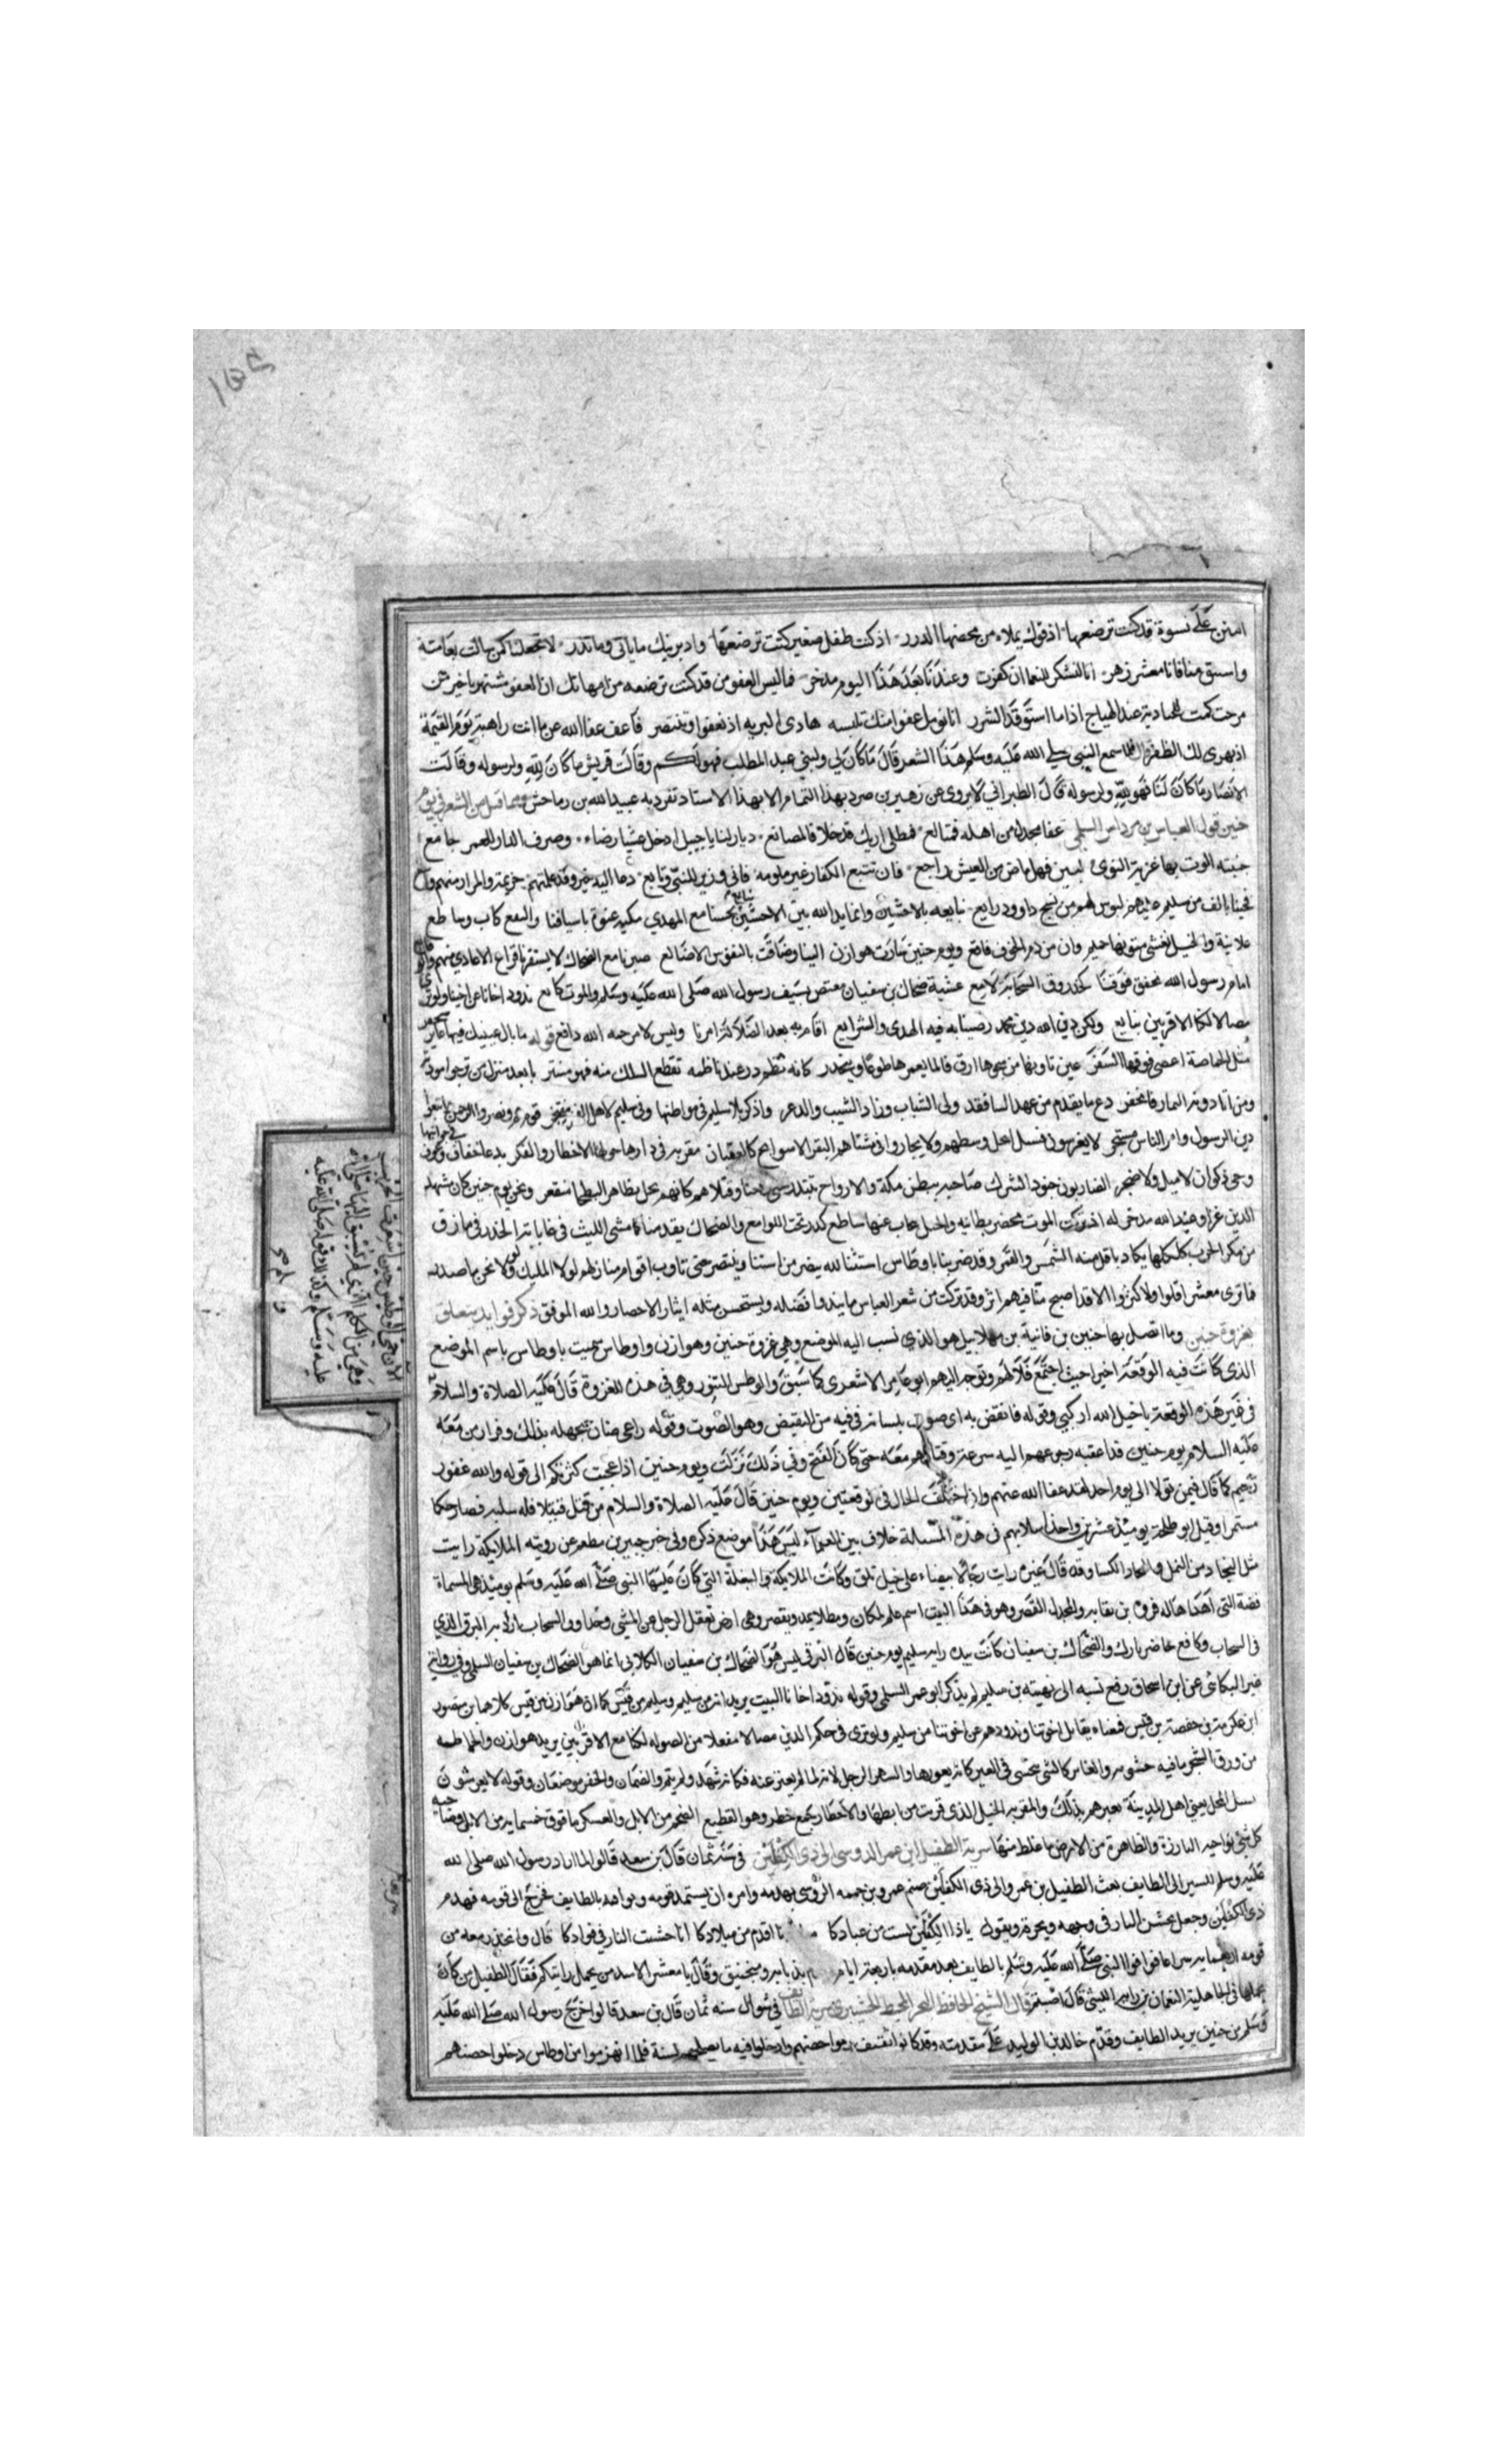 امنن على نسوة قد كنت ترضعها اذ فوك يملاء من محضها الدرر اذ كنت طفل صغير كنت ترضعها واذ يزينك ما ياتي وما تذر لا تجعلنا كمن شالت نعامته
واستبق منا فانا معشر زهر انا لنشكر للنعما ان كفرت وعندنا بعد هذا اليوم مدخر فالبس العفو من قد كنت ترضعه من امهاتك ان العفو مشتهر يا خير من
مرحت كمت الجياد به عند الهياج اذا ما استوقد الشرر انا نومل عفوا منك تلبسه هادي البريه اذ تعفوا وتنتصر فاعف عفا الله عما انت راهبه يوم القيمة
اذ يهدى لك الظفر فلما سمع النبي صلى الله عليه وسلم هذا الشعر قال ما كان لي ولبني عبد المطلب فهو لكم وقالت قريش ما كان لله ولرسوله وقالت
الانصار ما كان لنا فهو لله ولرسوله قال الطبراني لا يروى عن زهير بن صرد بهذا التمام الا بهذا الاسناد تفرد به عبيد الله بن رماحس ومما قيل من الشعر في يوم
حنين قول العباس بن مرداس السلمي عفا مجدل من اهله فمتالع فمطلى اريك قد خلا فالمصانع ديار لنا يا جمل اذ جل عيشنا رضاء وصرف الدار للحى جامع
حبيبه الوت بها غربة النوى لبين فهل ماض من العيش راجع فان تتبع الكفار غير ملومه فاني وزير للنبي وتابع دعا اليه خير وفد علمتهم خزيمة والمرار منهم
فجينا بالف من سليم عليهم لبوس لهم من نسج داوود رايع نبايعه بالاخشبين وانما يد الله بين الاخشبين نبايع فجسنا مع المهدي مكه عنوة باسيافنا والنقع كاب وساطع
علانية والخيل يغشى متونها حميم وان من دم الجوف ناقع ويوم حنين سارت هوازن الينا وضاقت بالنفوس الاضالع صبرنا مع الضحاك لا يستفزنا قراع الاعادي منهم
امام رسول الله يخفق فوقنا كخذروف السحابة لامع عشية ضحاك بن سفيان معتص بسيف رسول الله صلى الله عليه وسلم والموت كانع نذود اخانا عن اخينا ولو نرى
مصالا لكنا الاقربين نتابع ولكن دين الله دين محمد رضينا به فيه الهدى والشرايع اقام به بعد الضلالة امرنا وليس لامر حمه الله دافع قوله ما بال عينيك فيها عاير
مثل الحماصة اغضى فوقها الشفر عين تاوبها من شجوها ارق فالماء يغمرها طورا وينحدر كانه نظم در عند ناظمه تقطع السلك منه فهو منتثر يا بعد منزل من ترجو مودته
ومن اتا دونه الصمان فالحفر دع ما تقدم من عهد السا فقد ولى الشباب وزاد الشيب والذعر واذكر بلا سليم في مواطنها وفي سليم لاهل الفخر مفتخر قوم هم نصروا الرحمن واتبعوا
دين الرسول وامر الناس مشتجر لا يغرسون فسيل النخل وسطهم ولا تخاور في مشتاهم البقر الا سوابح كالعقبان مقربه في دارها حولها الاخطار والفكر
الضاربون جنود الشرك ضاحيه ببطن مكة والارواح تبتدر كانهم نخل بظاهر البطحا منقعر ونحن يوم حنين كان مشهدنا
للدين عزا وعند الله مدخر اذ نركب الموت مخضرا بطاينه والخيل ينجاب عنها ساطع كدر تحت اللوامع والضحاك يقدمنا كما مشى الليث في غاباته الخدر في مازق
من مكر الحرب كلكلها يكاد يافل منه الشمس والقمر وقد صبرنا باوطاس اسنتنا لله ينصر من شينا وينتصر حتى تاوب اقوام منازلهم لولا المليك ولولا نحن ما صدروا
فما ترى معشرا قلوا ولا كثروا الا قد اصبح منا فيهم اثر وقد تركت من شعر العباس ويستحسن مثله ايثار الاختصار والله الموفق ذكر فوايد تتعلق
بغزوة حنين وما اتصل بها حنين بن قانية بن مهلاييل هو الذي نسب اليه الموضع وهي غزوة حنين وهوازن واوطاس سميت باوطاس باسم الموضع
الذي كانت فيه الوقعة اخيرا حيث اجتمع فلالهم وتوجه اليهم ابو عامر الاشعري كما سبق والوطيس التنور وهي في هذه الغزوة قال عليه الصلاة والسلام
في غير هذه الوقعة يا خيل الله اركبي وقوله فانقض به اى صوت بلسانه في فيه من النقيض وهو الصوت وقوله راعى ضان يجهله بذلك وفرار من معه
عليه السلام يوم حنين قد اعقبه رجوعهم اليه سرعة وقتالهم معه حتى كان الفتح وفي ذلك نزلت ويوم حنين اذ اعجبتكم كثرتكم الى قوله والله غفور
رحيم كما قال فيمن تولا الى يوم احد لقد عفا الله عنهم وان اختلف الحال في الوقعتين ويوم حنين قال عليه الصلاة والسلام من قتل قتيلا فله سلبه فصار حكما
مستمرا وقتل ابو طلحة يوميذ عشرين واخذ اسلابهم في هذه المسالة خلاف بين العلماء ليس هذا موضع ذكره وفي خبر جبير بن مطعم عن رويته الملايكة رايت
مثل البجاد من النمل والبجاد الكسا وقد قال غيره رايت رجالا بيضاء على خيل بلق وكانت الملايكة والبغلة التي كان عليها النبي صلى الله عليه وسلم يوميذ هي المسماة
فضة التي اهداها له فروة بن نفاثه والمجدل القصر وهو في هذا البيت اسم علم لمكان ومطلا يمد ويقصر وهي ارض تعقل الرجل عن المشي وخذاوف السحاب اراد به البرق الذي
في السحاب وكانع حاضر نازل والضحاك بن سفيان كانت بيده راية سليم يوم حنين قال البرقي ليس هو الضحاك بن سفيان الكلابي انما هو الضحاك بن سفيان السلمي وفي رواية
غير البكائي عن ابن اسحاق رفع نسبه الى بهثة بن سليم لم يذكر ابو عمر السلمي وقوله نذود اخانا البيت يريد انه من سليم وسليم من قيس كما ان هوازن من قيس كلاهما بن منصور
ابن عكرمة بن خصفة بن قيس فمعناه يقاتل اخوتنا ونذودهم عن اخوتنا من سليم ولو نرى في حكم الدين مصالا مفعلا من الصوله لكنا مع الاقربين يريد هوازن والحماطه
من ورق الشجر ما فيه خشونه والعاير كالشي يتخس في العين كانه يعورها والسهر الرجل لانه لما لم يفتر عنه فكانه شهد ولم يتم والصمان والحفر موضعان وقوله لا يغرسون
فسيل النخل يعني اهل المدينة يعيرهم بذلك والمقربه الخيل الذي قربت من ابطنها والاخطار جمع خطر وهو القطيع الضخم من الابل والعسكر ما فوق خمسمايه من الابل وضاحيه
كل شي نواحيه البارزة والظاهرة من الارض ما غلظ منها سرية الطفيل بن عمرو الدوسي الى ذي الكفين في سنة ثمان قال بن سعد قالوا لما اراد رسول الله صلى الله
عليه وسلم المسير الى الطايف بعث الطفيل بن عمرو الى ذي الكفين صنم عمرو بن حممه الدوسي يهدمه وامره ان يستمد قومه ويوافيه بالطايف فخرج الى قومه فهدم
ذي الكفين وجعل يحش النار في وجهه ويحرقه ويقول يا ذا الكفين لست من عبادكا ميلادنا اقدم من ميلادكا انا حششت النار في فوادكا قال وانحدر معه من
قومه اربعمايه سراعا فوافوا النبي صلى الله عليه وسلم بالطايف بعد مقدمه باربعة ايام وقدم بدبابه ومنجنيق وقال يا معشر الاسد من يحمل رايتكم فقال الطفيل من كان
يحملها في الجاهلية النعمان بن بازيه اللهبي قال اصبتم قال الشيخ الحافظ في شوال سنه ثمان قال بن سعد قالوا خرج رسول الله صلى الله عليه
وسلم من حنين يريد الطايف وقدم خالد بن الوليد على مقدمته وقد كانوا ثقيف رموا حصنهم وادخلوا فيه ما يصلحهم لسنة فلما انهزموا من اوطاس دخلوا حصنهم
الآن حمى الوطيس حين استعرت الحرب
وهي من الكلم التي لم يسبق اليها صلى الله
عليه وسلم وكذلك قوله صلى الله عليه